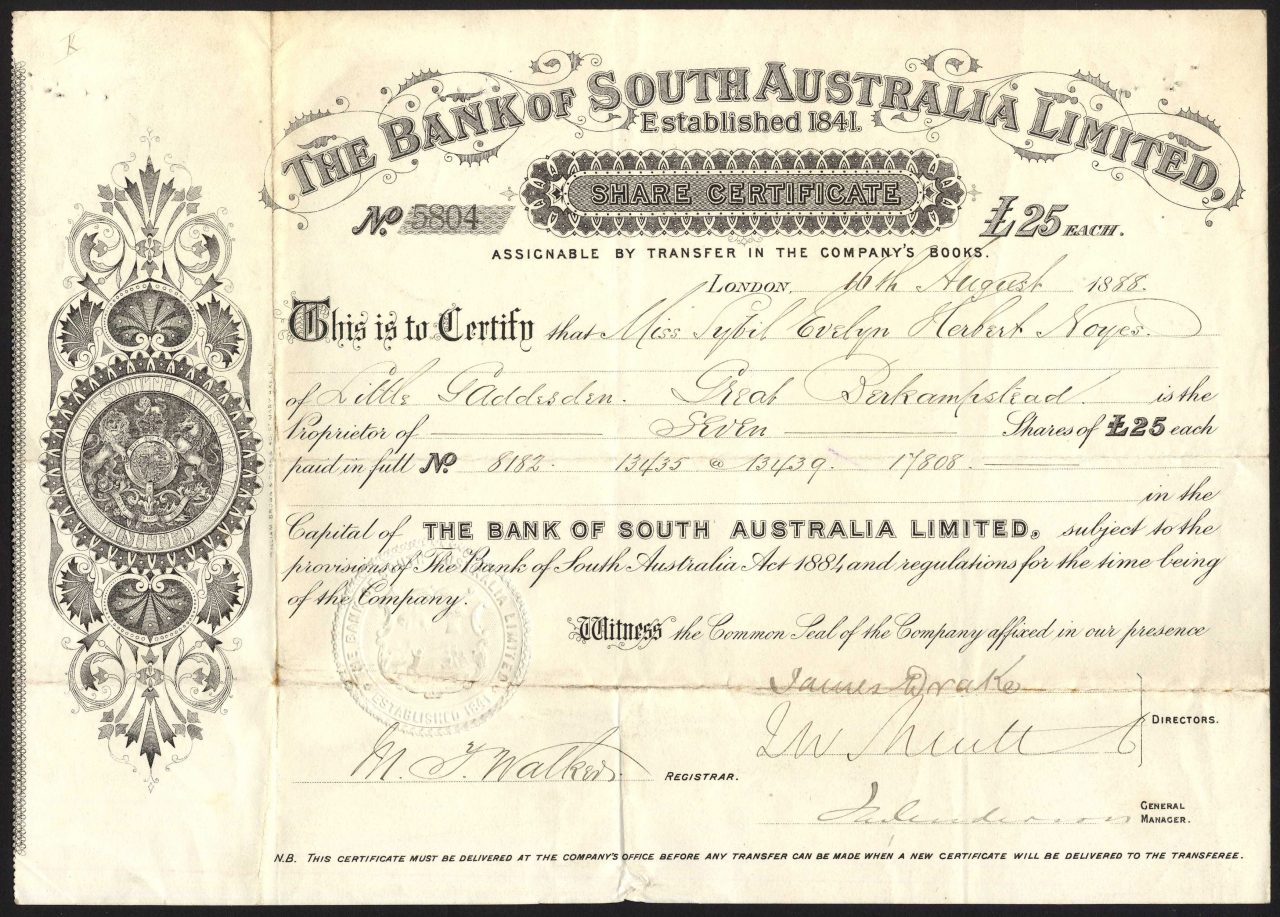 K
THE BANK OF SOUTH AUSTRALIA LIMITED,
Established 1841.
SHARE CERTIFICATE
No. 5804
£25 EACH.
ASSIGNABLE BY TRANSFER IN THE COMPANY'S BOOKS.
LONDON, 16th August 1888.
This is to Certify that Miss Sybil Evelyn Herbert Noyes.
of Little Gaddesden. Great Berkampstead. is the
Proprietor of Seven Shares of £25 each
paid in full No. 8182. 13435 @ 13439. 17808.
in the
Capital of THE BANK OF SOUTH AUSTRALIA LIMITED, subject to the
provisions of The Bank of South Australia Act 1884, and regulations for the time being
of the Company.
Witness the Common Seal of the Company affixed in our presence
James Drake
DIRECTORS.
M. F. Walker.
REGISTRAR.
GENERAL
MANAGER.
N.B. THIS CERTIFICATE MUST BE DELIVERED AT THE COMPANY'S OFFICE BEFORE ANY TRANSFER CAN BE MADE WHEN A NEW CERTIFICATE WILL BE DELIVERED TO THE TRANSFEREE.
BANK OF SOUTH AUSTRALIA
LIMITED
THE BANK OF SOUTH AUSTRALIA LIMITED
ESTABLISHED 1841